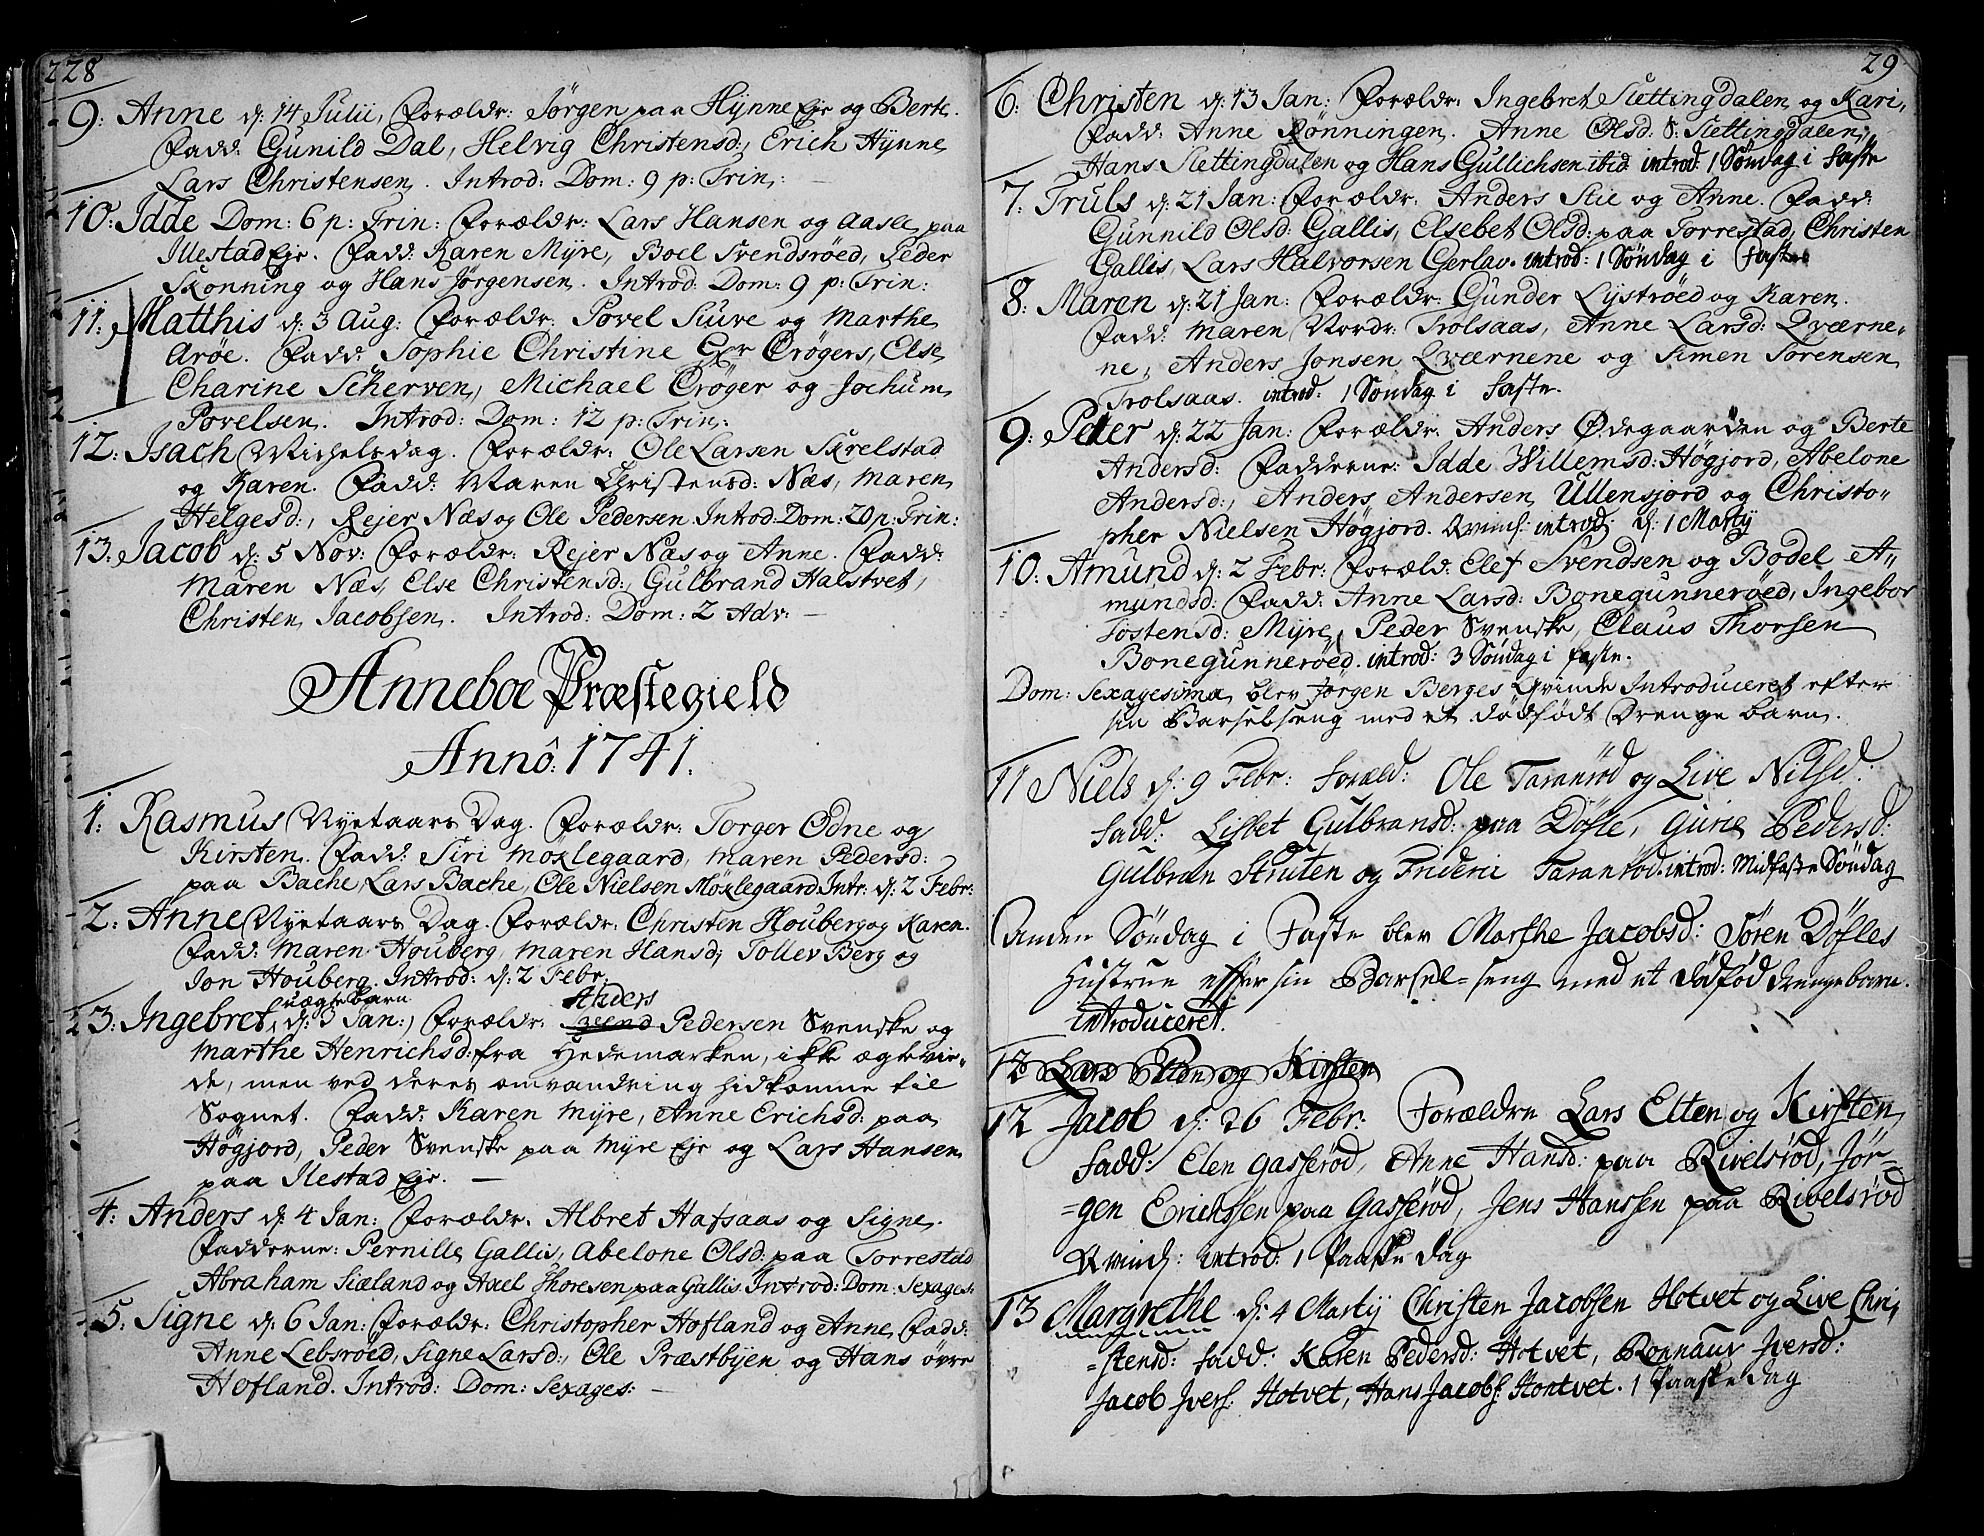 228
9: Anne d: 14 Julii, Forældr: Jörgen paa Hynne Eje og Berte.
Fadd: Gunild Dal, Helvig Christensd:, Erich Hynne
Lars Christensen. Introd: Dom: 9 p: Trin:
10: Idde Dom: 6 p: Trin: Forældr: Lars Hansen og Aasle paa
Illestad Eje. Fadd: Karen Myre, Boel Svendsröed, Peder
Skonning og Hans Jörgensen. Introd: Dom: 9 p: Trin:
11: Matthis d: 3 Aug: Forældr: Povel Siuve og Marthe
Aröe. Fadd: Sophie Christine Crögers, Else
Charine Scherven, Michael Cröger og Jochum
Povelsen. Introd: Dom: 12 p: Trin:
12: Isach Michelsdag. Forældr: Ole Larsen Skrelstad
og Karen. Fadd: Maren Christensd: Næs, Maren
Helgesd:, Rejer Næs og Ole Pedersen. Introd: Dom: 20 p: Trin:
13: Jacob d: 5 Nov: Forældr: Rejer Næs og Anne. Fadd:
Maren Næs, Else Christensd:, Gulbrand Halstvet,
Christen Jacobsen. Introd: Dom: 2 Adv:
Anneboe Præstegield
Annô: 1741.
1: Rasmus Nyetaars Dag. Forældr: Torger Odne og
Kirsten. Fadd: Siri Moxlegaard, Maren Pedersd:
paa Bache, Lars Bache, Ole Nielsen Möxlegaard. Intr: d: 2 Febr:
2: Anne Nyetaars Dag. Forældr: Christen Houberg og Karen.
Fadd: Maren Houberg, Maren Hansd:, Tollev Berg og
Jon Houberg. Introd: d: 2 Febr.
uægte barn Anders
3: Ingebret, d: 3 Jan:, Forældr: Svend Pedersen Svenske og
Marthe Henrichsd: fra Hedemarken, ikke ægtevie-
de, men ved deres omvandring hidkomne til
Sognet. Fadd: Karen Myre, Anne Erichsd: paa
Högjord, Peder Svenske paa Myre Eje og Lars Hansen
paa Ilestad Eje.
4: Anders d: 4 Jan: Forældr: Albret Hafsaas og Signe.
Fadderne: Pernille Gallis, Abelone Olsd: paa Torrestad
Abraham Siæland og Axel Thoresen paa Gallis. Introd: Dom: Sexages:
5: Signe d: 6 Jan: Forældr: Christopher Hofland og Anne. Fadd:
Anne Lebsröed, Signe Larsd:, Ole Præstbyen og Hans övre
Hofland. Introd: Dom: Sexages:
29
6: Christen d: 13 Jan: Forældr: Ingebret Slettingdalen og Kari.
Fadd: Anne Rönningen. Anne Olsd. S: Slettingdalen,
Hans Slettingdalen og Hans Gullichsen ibid. introd: 1 Söndag i Faste
7: Truls d: 21 Jan: Forældr: Anders Stie og Anne. Fadd:
Gunnild Olsd: Gallis, Elsebet Olsd: paa Torrestad, Christen
Gallis, Lars Halvorsen Gerlav. introd: 1 Söndag i Faste
8: Maren d: 21 Jan: Forældr: Gunder Lyströed og Karen.
Fadd: Maren Nordr: Trolsaas, Anne Larsd: Qværne-
ne, Anders Jonsen Qværnene og Simen Sörensen
Trolsaas. introd: 1 Söndag i Faste.
9: Peter d: 22 Jan: Forældr: Anders Ödegaarden og Berte
Andersd: Fadderne: Idde Willemsd: Högjord, Abelone
Andersd:, Anders Andersen Ullensjord og Christo-
pher Nielsen Högjord. Qvind: introd: d: 1 Martij
10: Amund d: 2 Febr: Foræld: Elef Svendsen og Bodel A-
mundsd: Fadd: Anne Larsd: Bonegunneröed, Ingebor
Tostensd: Myre, Peder Svenske, Claus Thorsen
Bonegunneröed. introd: 3 Söndag i faste.
Dom: Sexagesima blev Jörgen Berges Qvinde Introduceret efter
sin Barselseng med et dödfödt Drenge barn.
11 Niels d: 9 Febr: foræld: Ole Taranröd og Live Nilsd:
fadd: Lisbet Gulbransd: paa Döfle, Gurie Pedersd:
Gulbran Struten og Frideric Taranröd. introd: Midfaste Söndag
Anden Söndag i Faste blev Marthe Jacobsd: Sören Döfles
Hustrue efter sin Barsel-seng med et dödföd drengebarn.
introduceret.
12 Lars Etten og Kirsten
12 Jacob d: 26 Febr: Forældre Lars Etten og Kirsten
fadd: Elen Gasseröd, Anne Hansd: paa Rivelsröd, Jör-
-gen Erichssen paa Gasseröd, Jens Hanssen paa Rivelsröd
Qvind: introd: 1 Paaske dag
13 Margrethe d: 4 Martij Christen Jacobsen Hotvet og Live Chri,
-stensd: fadd: Karen Pedersd: Hotvet, Ronnauv Jversd:
Jacob Jvers: Hotvet, Hans Jacobs: Hontvet. 1 Paaske dag